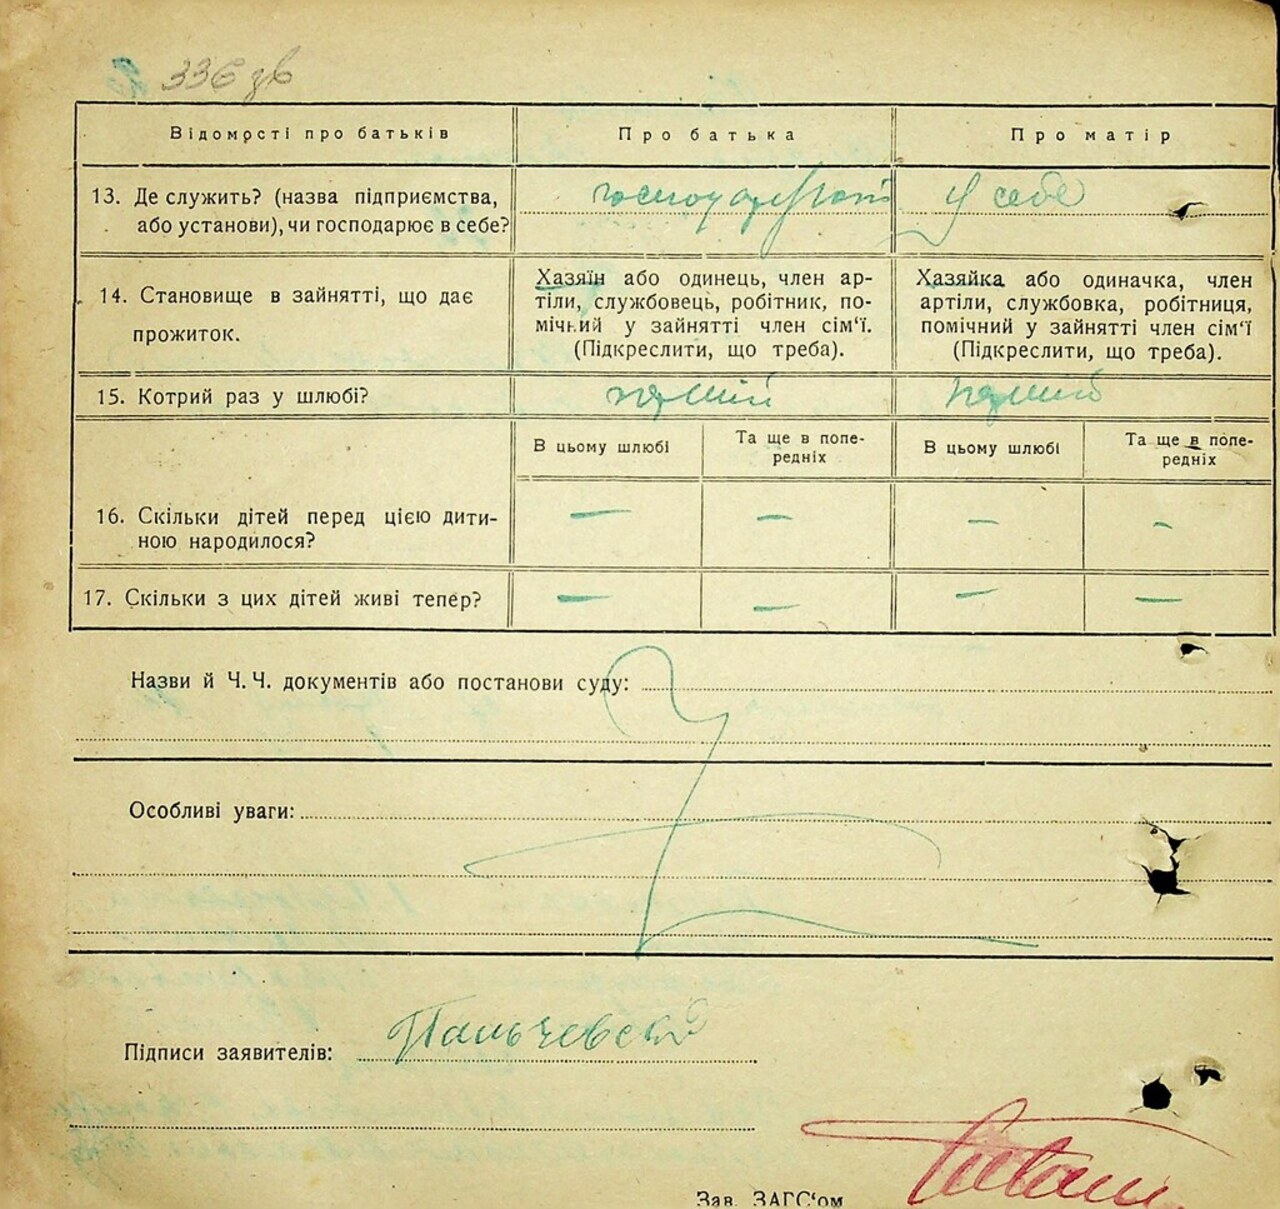 336 зв
Відомості про батьків
Про батька
Про матір
13. Де служить? (назва підприємства,
або установи), чи господарює в себе?
у себе
14. Становище в зайнятті, що дає
прожиток.
Хазяїн або одинець, член ар-
тіли, службовець, робітник, по-
мічний у зайнятті член сім'ї.
(Підкреслити, що треба).
Хазяйка або одиначка, член
артіли, службовка, робітниця,
помічний у зайнятті член сім'ї
(Підкреслити, що треба).
15. Котрий раз у шлюбі?
перший
перший
В цьому шлюбі
Та ще в попе-
редніх
В цьому шлюбі
Та ще в попе-
редніх
16. Скільки дітей перед цією дити-
ною народилося?
—
—
—
—
17. Скільки з цих дітей живі тепер?
—
—
—
—
Назви й Ч. Ч. документів або постанови суду:
Особливі уваги:
Підписи заявителів: Пальчевский
Зав. ЗАГС'ом